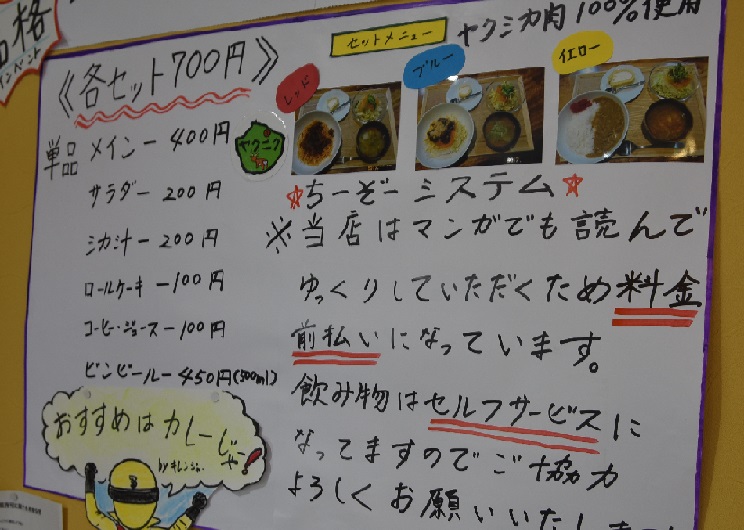 セットメニュー
ヤクシカ肉100%使用
《各セット700円》
レッド
ブルー
イエロー
単品 メイン－400円
サラダ－200円
シカ汁－200円
ロールケーキ－100円
コーヒー・ジュース－100円
ビンビール－450円(500ml)
ヤクニク
☆ちーぞーシステム☆
※当店はマンガでも読んで
ゆっくりしていただくため料金
前払いになっています。
飲み物はセルフサービスに
なってますのでご協力
よろしくお願いいたし
おすすめはカレーじゃー!